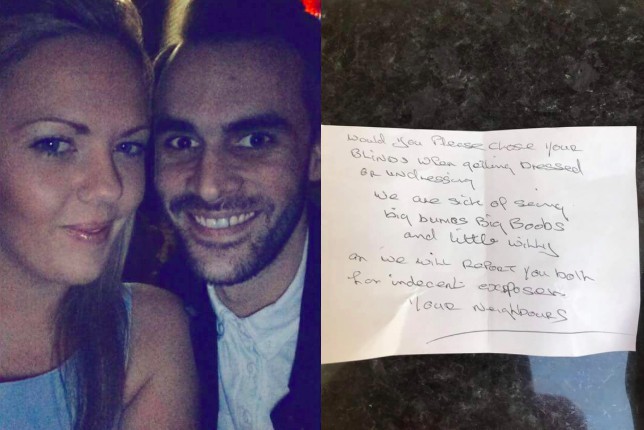 Would You Please Close Your
Blinds when getting Dressed
or undressing
We are sick of seing
big bumbs Big Boobs
and little willy
or we will Report You both
for indecent exposer
Your Neighbours